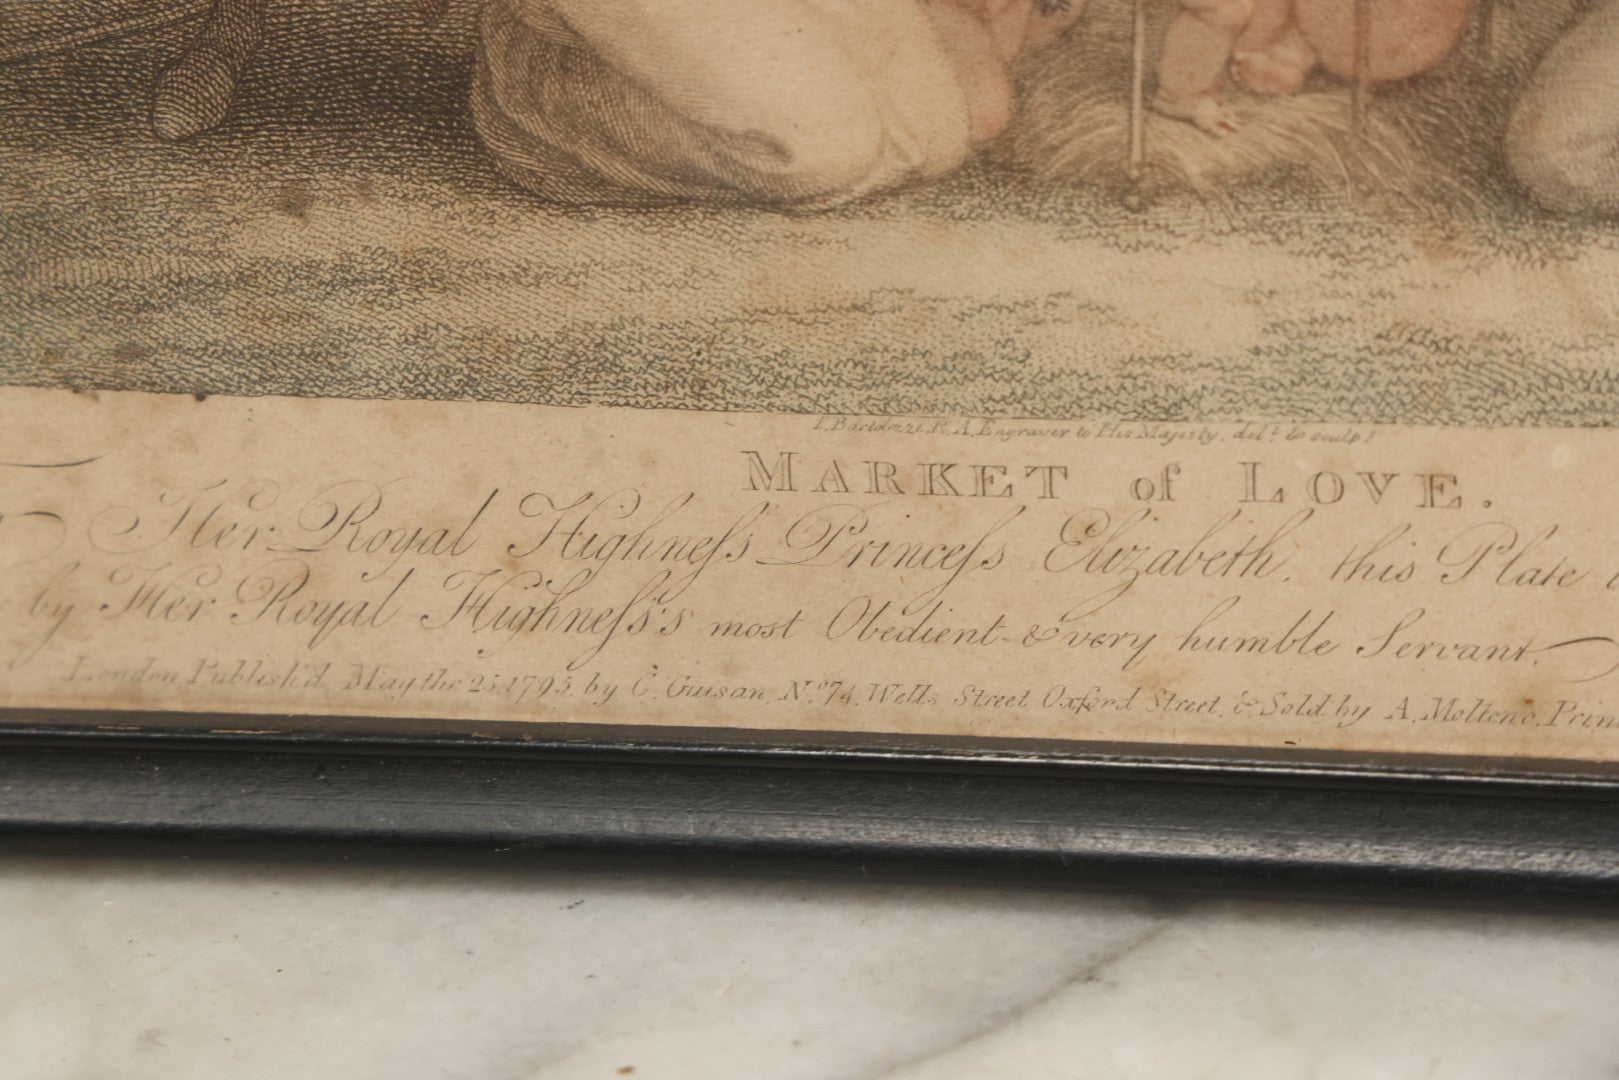 F. Bartolozzi R.A. Engraver to His Majesty, delt. & sculpt
MARKET of LOVE.
Her Royal Highneſs Princeſs Elizabeth, this Plate
by Her Royal Highneſs's most Obedient & very humble Servant.
London Publish'd May the 25, 1795, by C. Guisan, No. 74, Wells Street Oxford Street, & Sold by A. Molteno, Prin